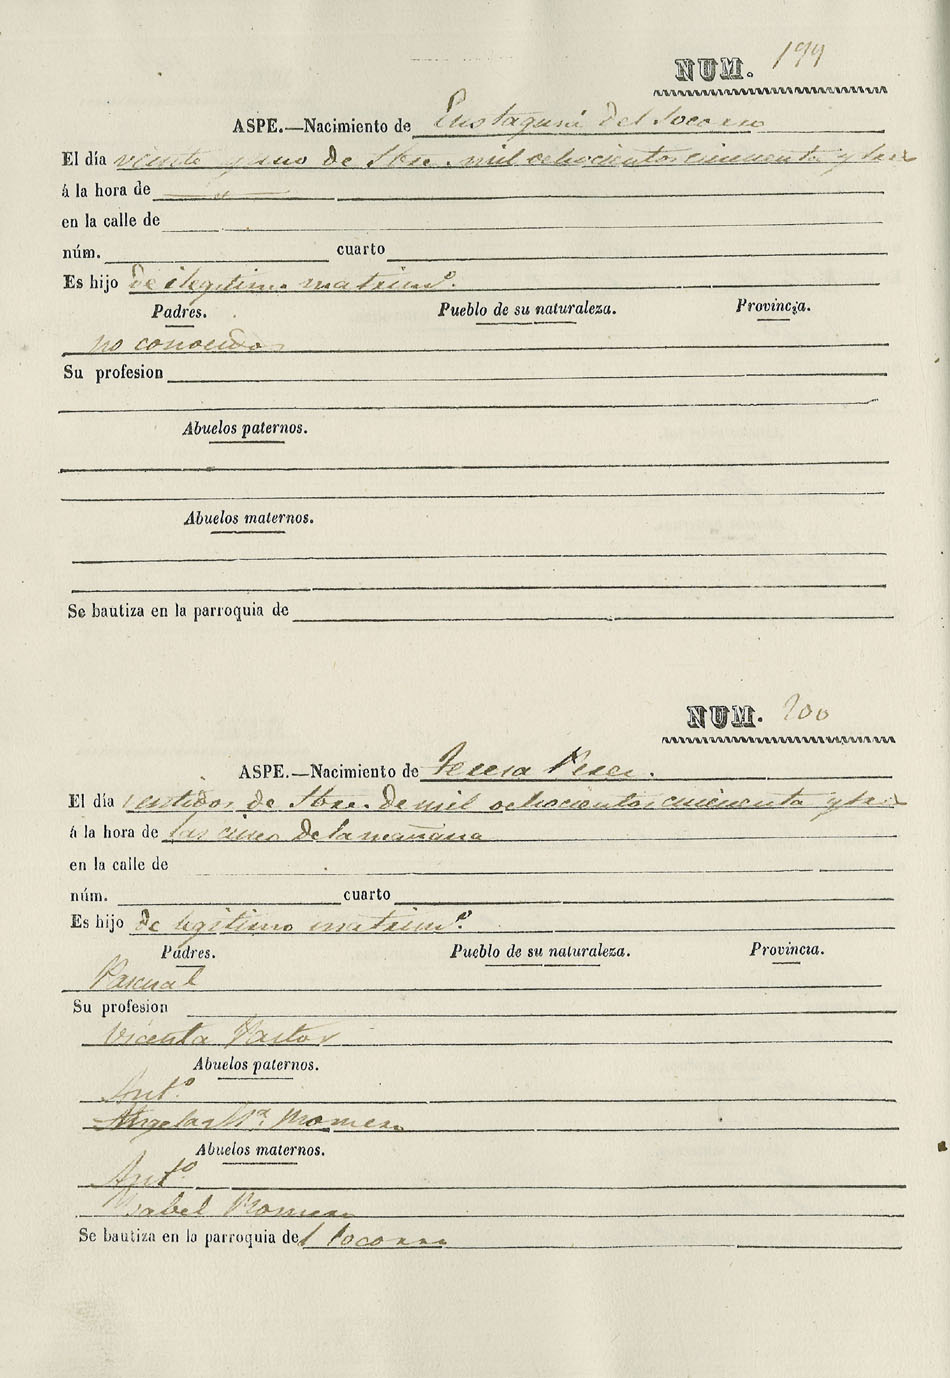 NUM. 199
ASPE.—Nacimiento de del Socorro
El día veinte y uno de Sbre. mil ochocientos cincuenta y tres
á la hora de
en la calle de
núm. cuarto
Es hijo de ilegitimo matrim.º
Padres. Pueblo de su naturaleza. Provincia.
no conocidos
Su profesion
Abuelos paternos.
Abuelos maternos.
Se bautiza en la parroquia de
NUM. 200
ASPE.—Nacimiento de Teresa Perez.
El día veintidos de Sbre. de mil ochocientos cincuenta y tres
á la hora de las cinco de la mañana
en la calle de
núm. cuarto
Es hijo de legitimo matrim.º
Padres. Pueblo de su naturaleza. Provincia.
Pascual
Su profesion
Vicenta Pastor
Abuelos paternos.
Ant.º
Angela M.ª Romero
Abuelos maternos.
Ant.º
Isabel Romero
Se bautiza en la parroquia del Socorro